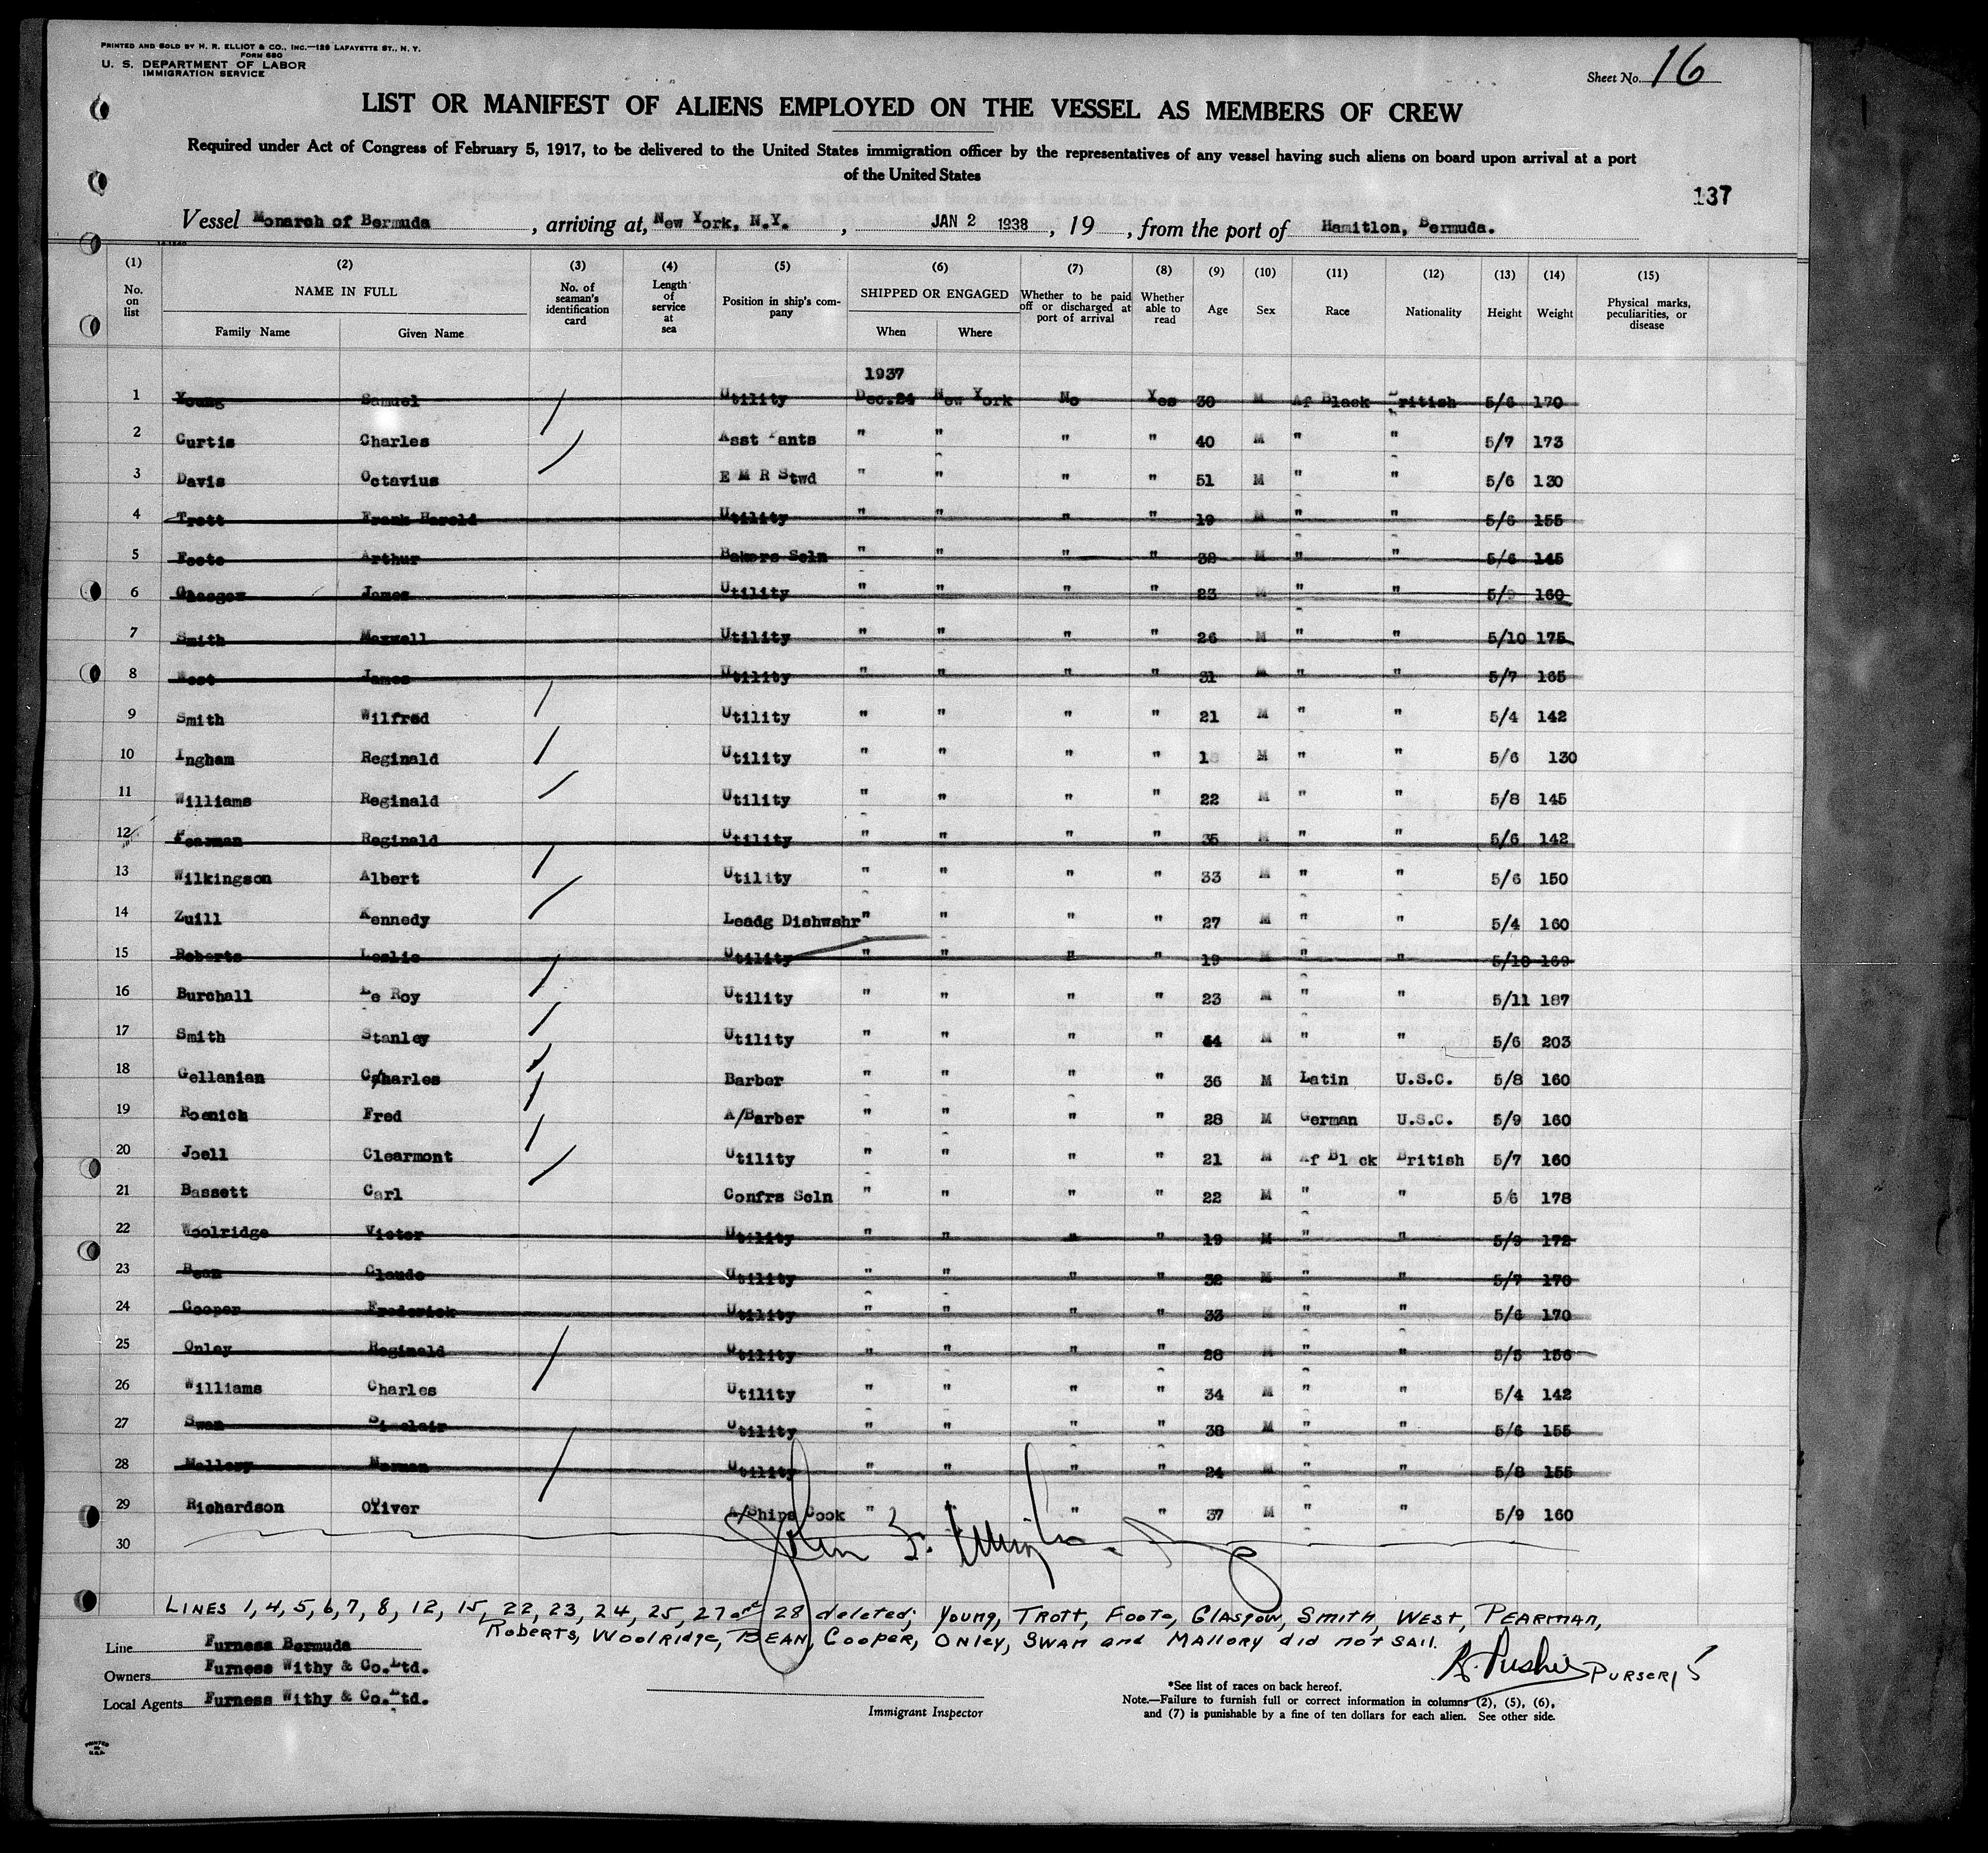 PRINTED AND SOLD BY H. R. ELLIOT & CO., INC.—129 LAFAYETTE ST., N. Y.
FORM 680
U. S. DEPARTMENT OF LABOR
IMMIGRATION SERVICE
Sheet No. 16
LIST OR MANIFEST OF ALIENS EMPLOYED ON THE VESSEL AS MEMBERS OF CREW
Required under Act of Congress of February 5, 1917, to be delivered to the United States immigration officer by the representatives of any vessel having such aliens on board upon arrival at a port
of the United States
137
Vessel Monarch of Bermuda, arriving at, New York, N.Y., JAN 2 1938, 19, from the port of Hamitlon, Bermuda.
(1) (2) (3) (4) (5) (6) (7) (8) (9) (10) (11) (12) (13) (14) (15)
No. on list NAME IN FULL Family Name Given Name No. of seaman's identification card Length of service at sea Position in ship's company SHIPPED OR ENGAGED When Where Whether to be paid off or discharged at port of arrival Whether able to read Age Sex Race Nationality Height Weight Physical marks, peculiarities, or disease
1937
1 Young Samuel Utility Dec.24 New York No Yes 30 M Af Black British 5/6 170
2 Curtis Charles Asst Pants " " " " 40 M " " 5/7 173
3 Davis Octavius E M R Stwd " " " " 51 M " " 5/6 130
4 Trott Frank Harold Utility " " " " 19 M " " 5/6 155
5 Foote Arthur Bakers Scln " " " " 32 M " " 5/6 145
6 Glasgow James Utility " " " " 23 M " " 5/9 160
7 Smith Maxwell Utility " " " " 26 M " " 5/10 175
8 West James Utility " " " " 31 M " " 5/7 165
9 Smith Wilfred Utility " " " " 21 M " " 5/4 142
10 Ingham Reginald Utility " " " " M " " 5/6 130
11 Williams Reginald Utility " " " " 22 M " " 5/8 145
12 Pearman Reginald Utility " " " " 35 M " " 5/6 142
13 Wilkingson Albert Utility " " " " 33 M " " 5/6 150
14 Zuill Kennedy Leadg Dishwshr " " " " 27 M " " 5/4 160
15 Roberts Leslie Utility " " " " 19 M " " 5/10 169
16 Burchall Le Roy Utility " " " " 23 M " " 5/11 187
17 Smith Stanley Utility " " " " 44 M " " 5/6 203
18 Gellanian Charles Barber " " " " 36 M Latin U.S.C. 5/8 160
19 Roenich Fred A/Barber " " " " 28 M German U.S.C. 5/9 160
20 Joell Clearmont Utility " " " " 21 M Af Black British 5/7 160
21 Bassett Carl Confrs Scln " " " " 22 M " " 5/6 178
22 Woolridge Victor Utility " " " " 19 M " " 5/9 172
23 Bean Claude Utility " " " " 32 M " " 5/7 170
24 Cooper Frederick Utility " " " " 33 M " " 5/6 170
25 Onley Reginald Utility " " " " 28 M " " 5/5 156
26 Williams Charles Utility " " " " 34 M " " 5/4 142
27 Swan Sinclair Utility " " " " 38 M " " 5/6 155
28 Mallory Norman Utility " " " " 24 M " " 5/8 155
29 Richardson Oliver A/Ships Cook " " " " 37 M " " 5/9 160
30
John F.
LINES 1, 4, 5, 6, 7, 8, 12, 15, 22, 23, 24, 25, 27 and 28 deleted; Young, Trott, Foote, Glasgow, Smith, West, Pearman,
Roberts, Woolridge, BEAN, Cooper, Onley, Swan and Mallory did not sail.
Line Furness Bermuda
Owners Furness Withy & Co.Ltd.
Local Agents Furness Withy & Co.Ltd.
PURSER
Immigrant Inspector
*See list of races on back hereof.
Note.—Failure to furnish full or correct information in columns (2), (5), (6),
and (7) is punishable by a fine of ten dollars for each alien. See other side.
PRINTED IN U.S.A.